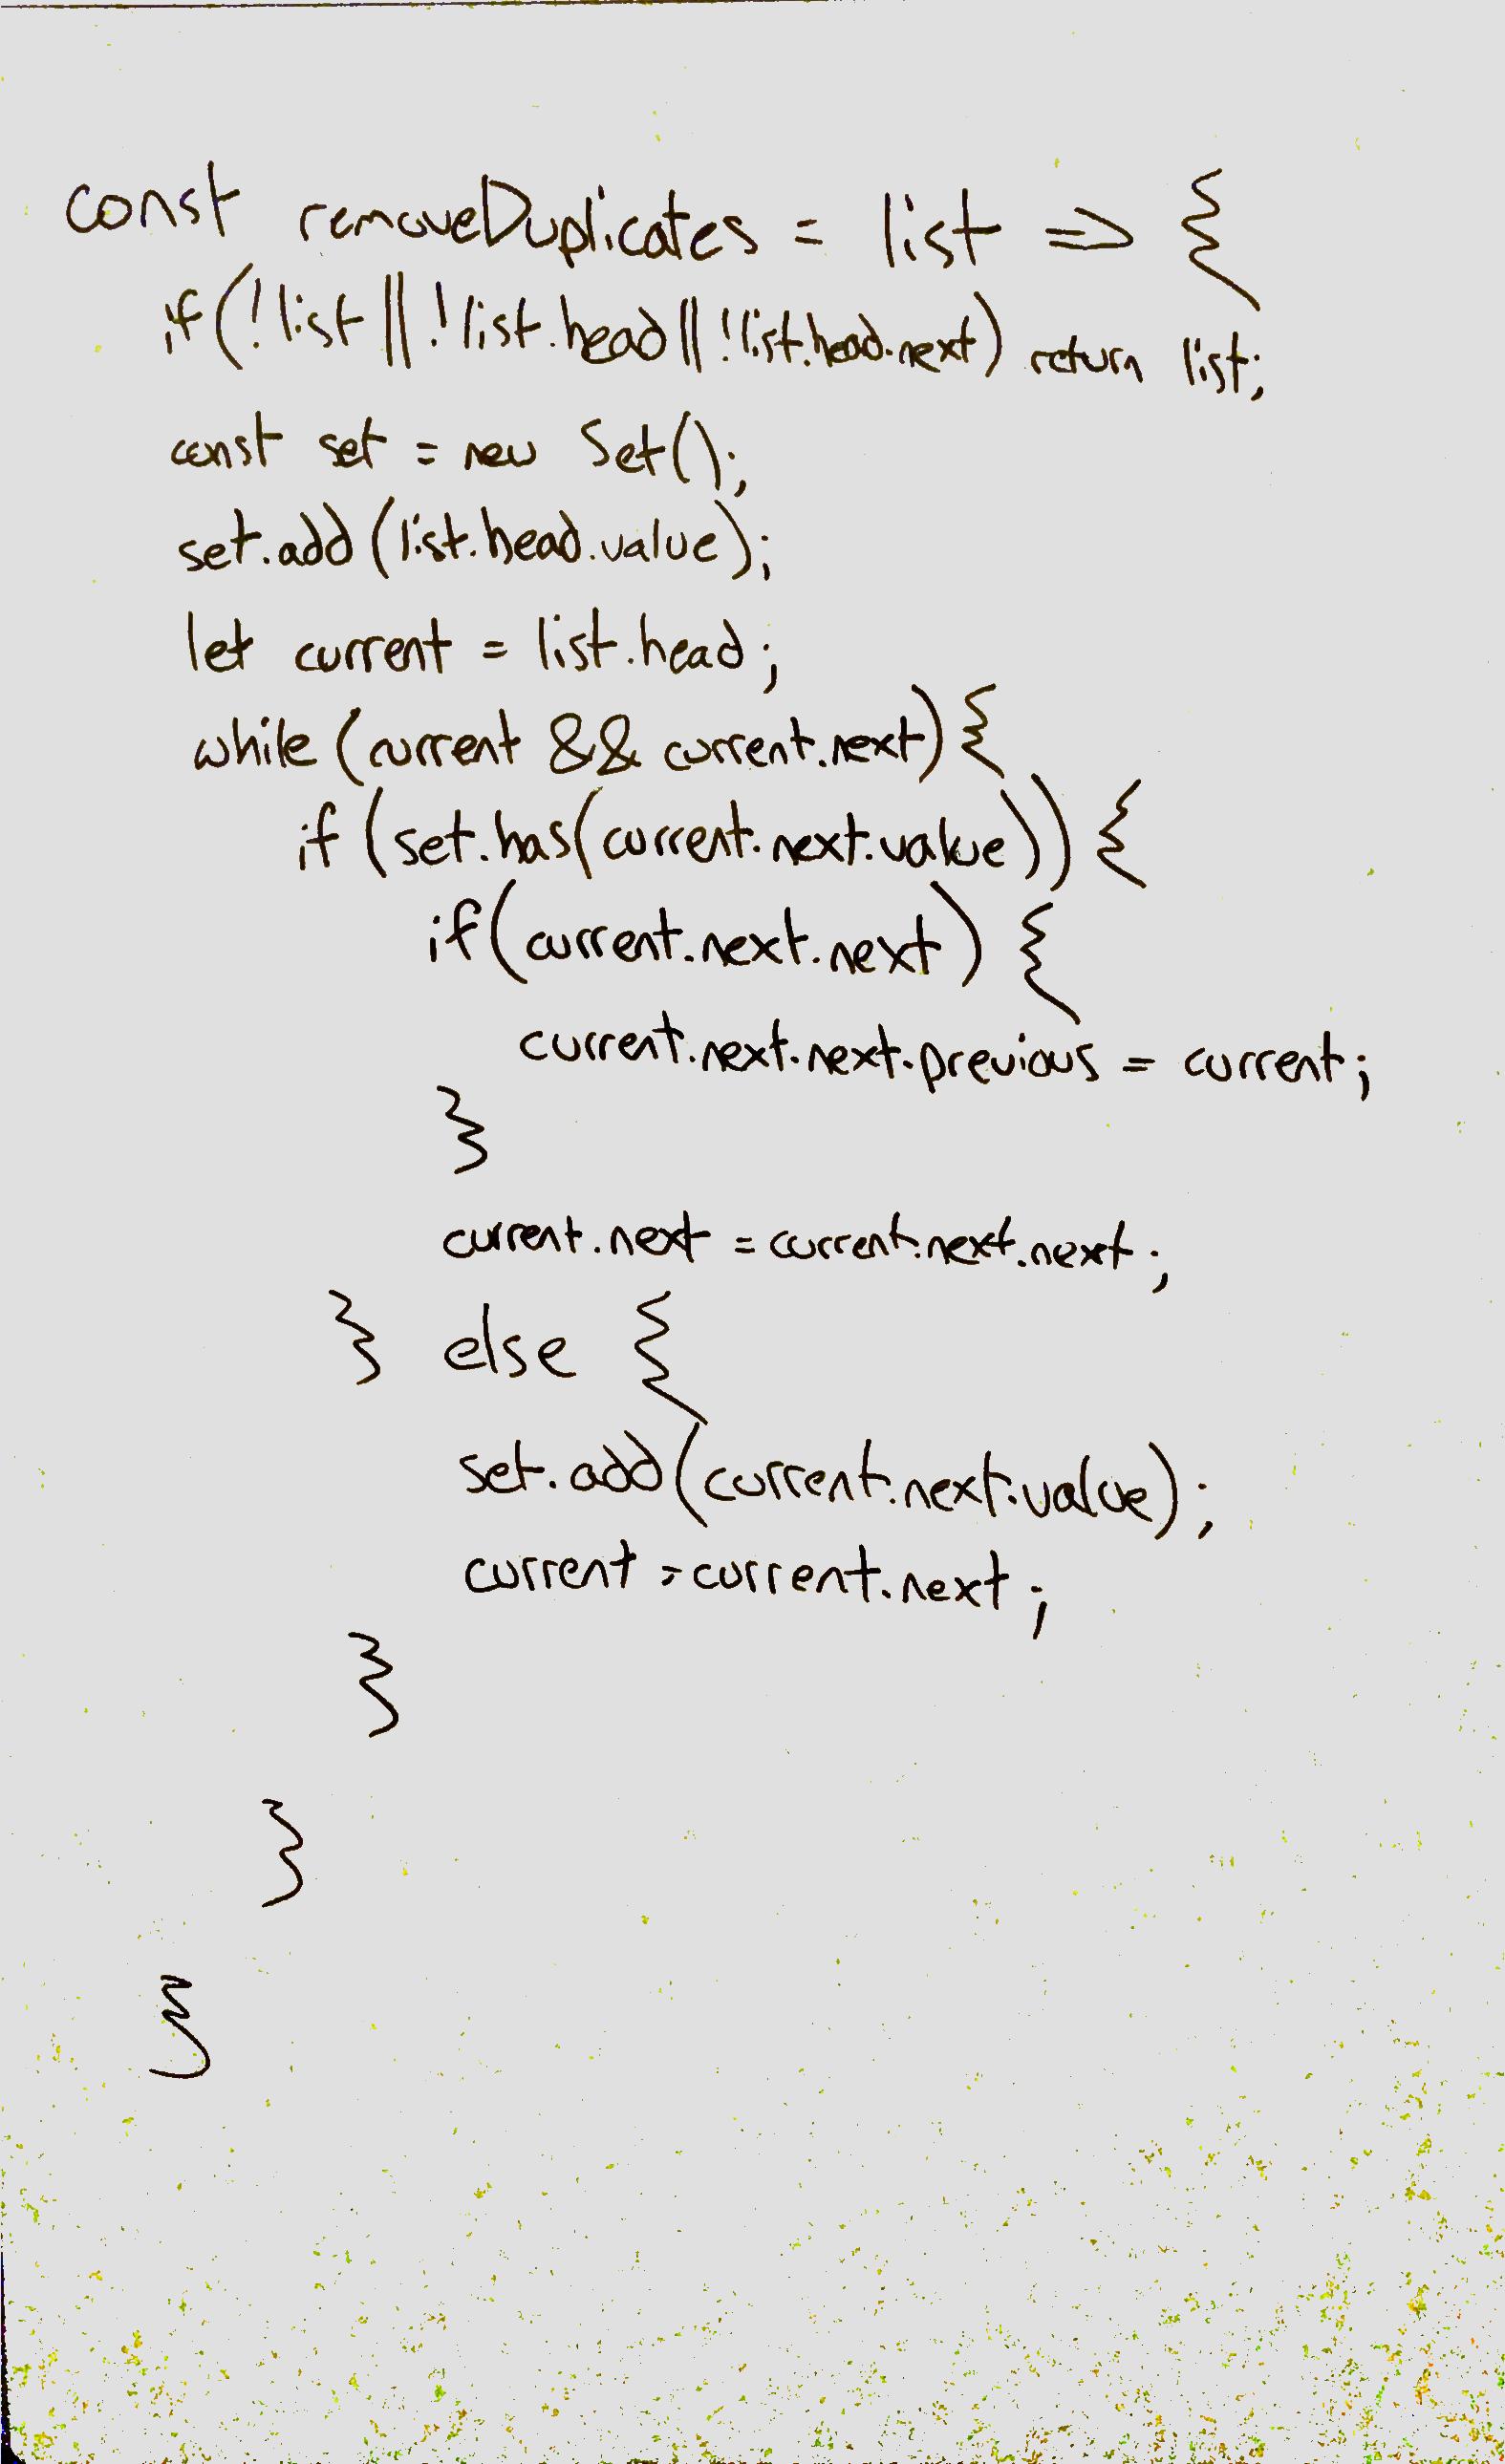 const removeDuplicates = list => {
if(!list||!list.head||!list.head.next) return list;
const set = new Set();
set.add(list.head.value);
let current = list.head;
while (current && current.next) {
if (set.has(current.next.value)) {
if(current.next.next) {
current.next.next.previous = current;
}
current.next = current.next.next;
} else {
set.add(current.next.value);
current = current.next;
}
}
}